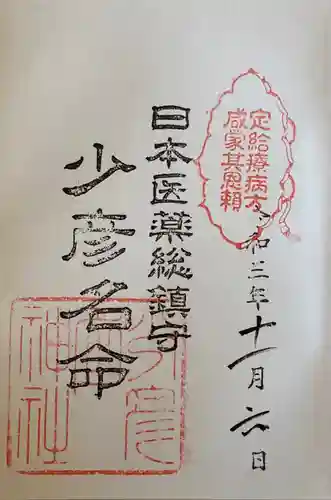 定給療病方
咸蒙其恩頼
令和三年十一月六日
日本医薬総鎮守
少彦名命
少彦
神社